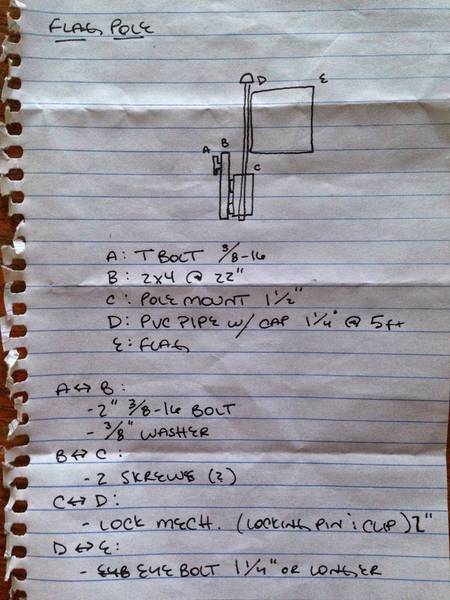 FLAG POLE
D E
A B
C
A: T BOLT 3/8-16
B: 2x4 @ 22"
C: POLE MOUNT 1½"
D: PVC PIPE W/ CAP 1¼" @ 5ft
E: FLAG
A ↔ B:
- 2" 3/8-16 BOLT
- 3/8" WASHER
B ↔ C:
- 2 SKREWS (2)
C ↔ D:
- LOCK MECH. (LOCKING PIN & CLIP) 2"
D ↔ E:
- EYE BOLT 1¼" OR LONGER